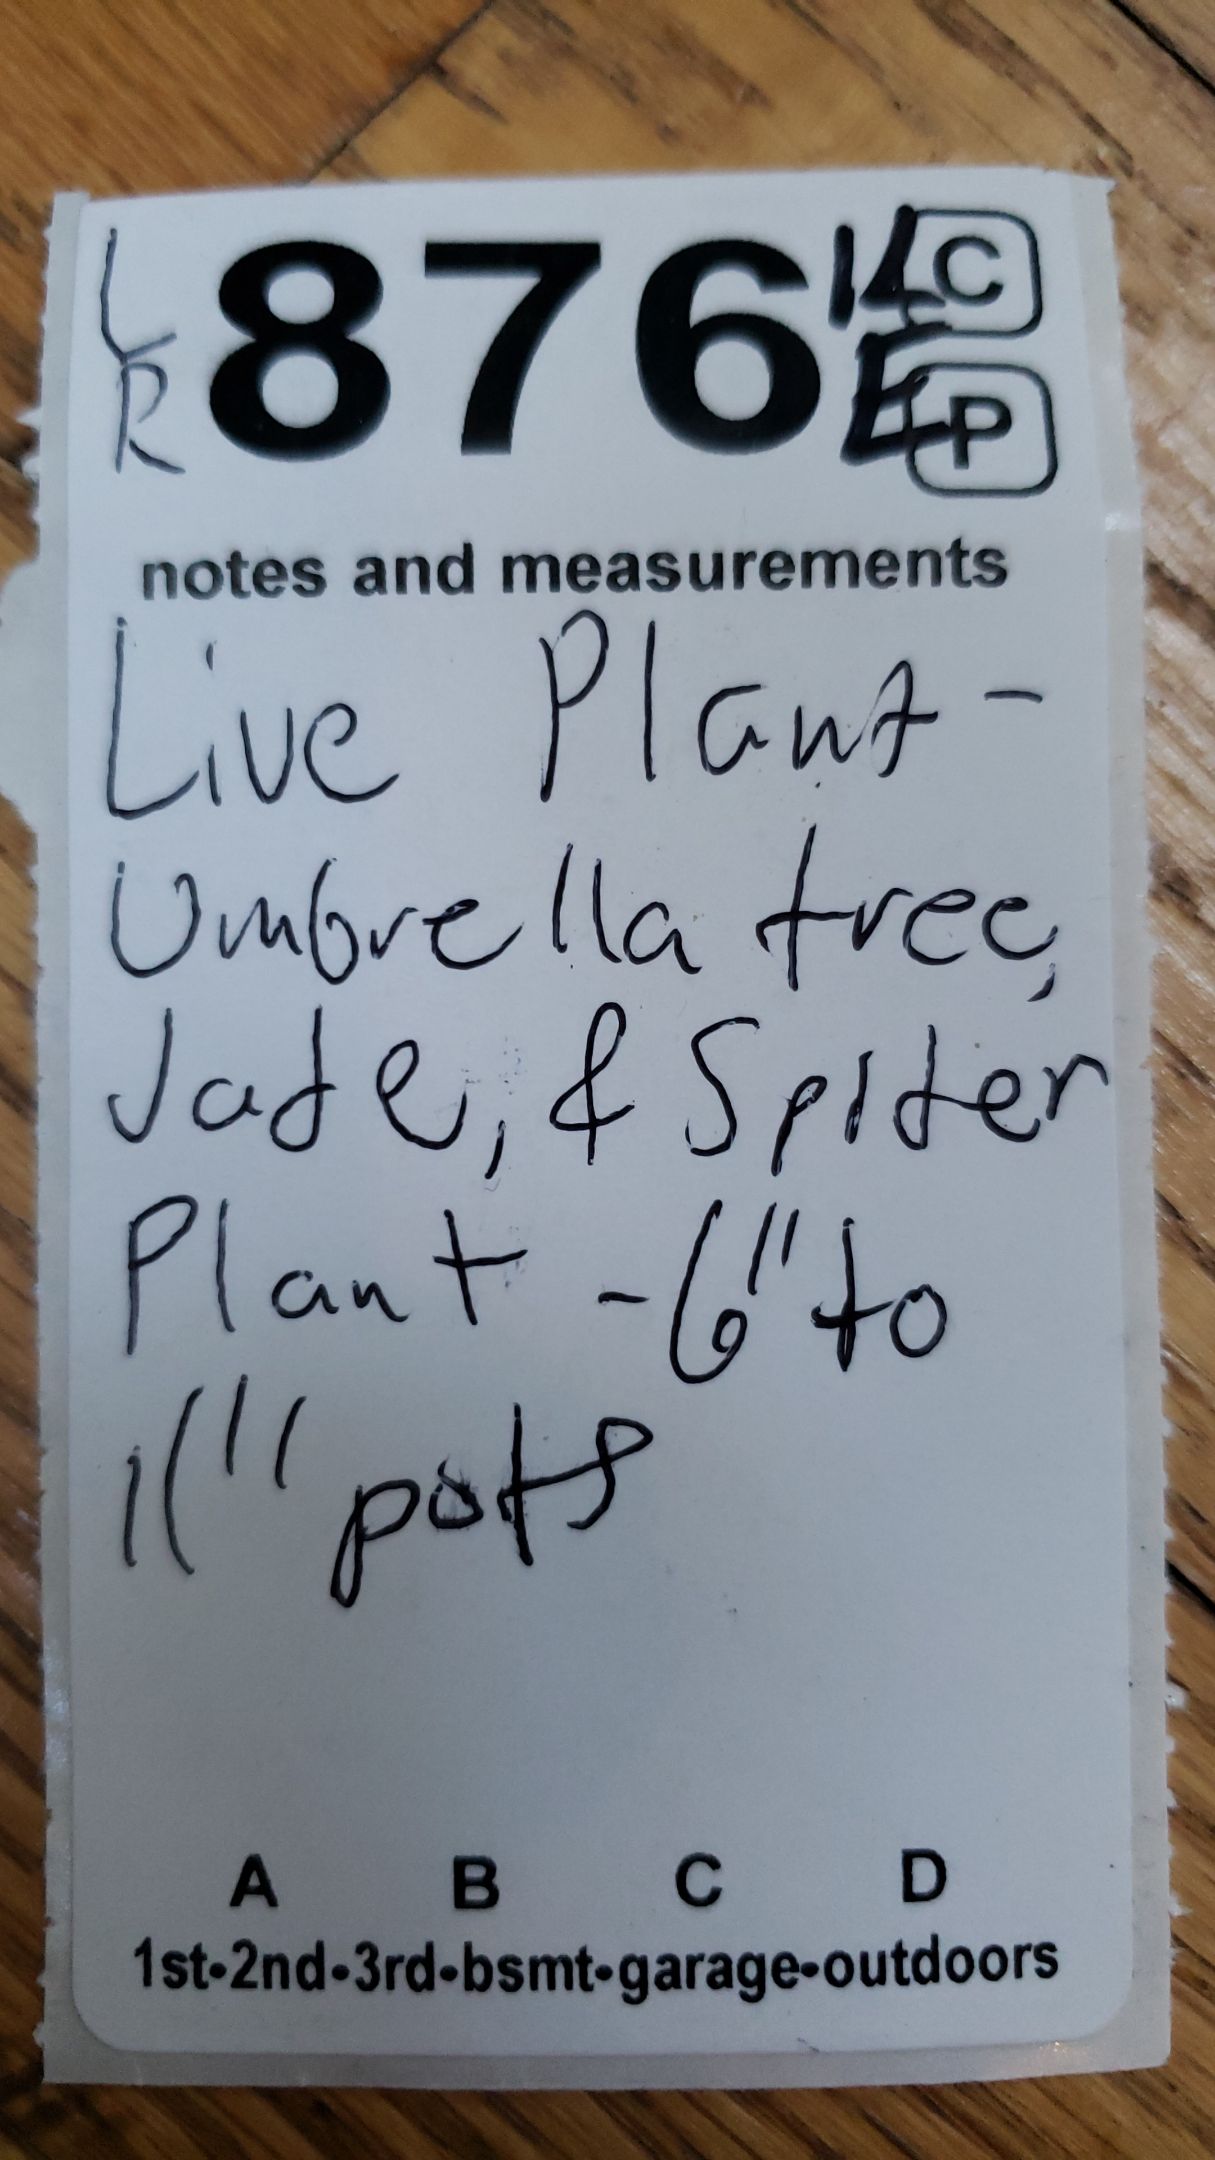 LR 876 14E C P
notes and measurements
Live Plant -
Umbrella tree,
Jade, & Spider
Plant - 6" to
11" pots
A B C D
1st•2nd•3rd•bsmt•garage•outdoors